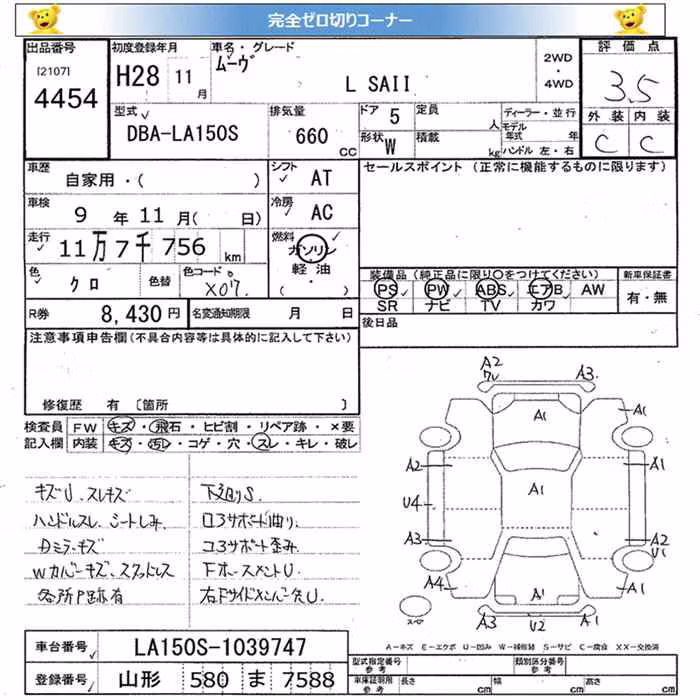 完全ゼロ切りコーナー
出品番号
[2107]
4454
初度登録年月
H28 11月
車名・グレード
ムーヴ
L SAII
2WD
・
4WD
評価点
3.5
外装 内装
C C
型式
DBA-LA150S
排気量
660 CC
ドア 5
形状 W
定員 人
積載 kg
ディーラー・並行
モデル年式 年
ハンドル 左・右
車歴
自家用・( )
シフト AT
セールスポイント (正常に機能するものに限ります)
車検
9 年 11 月( 日)
冷房 AC
走行
11万7千756 km
燃料
ガソリン
軽油
( ・ )
色
クロ
色替
色コード
X07
装備品(純正品に限り○をつけてください)
PS PW ABS エアB AW
SR ナビ TV カワ
新車保証書
有・無
R券 8,430円
名変通知期限 月 日
後日品
注意事項申告欄(不具合内容等は具体的に記入して下さい)
修復歴 有 〔箇所 〕
検査員記入欄
FW キズ・飛石・ヒビ割・リペア跡・×要
内装 キズ・汚レ・コゲ・穴・スレ・キレ・破レ
キズU、スレキズ
ハンドルスレ、シートしみ、
Dミラーキズ
Wカバーキズ、スタッドレス
各所P跡有
下廻りS
ロアサポート曲り、
コアサポート歪み
下ホースメントU
右Fサイドメンバー先U
A2 A3
ワレ
A1 A1
A2 A1 A1
U4
A3 A2
U1
A4 A1 A1
A3 U2 A1
スペア
A－キズ E－エクボ U－凹み W－補修跡 S－サビ C－腐食 XX－交換済
車台番号 LA150S-1039747
登録番号 山形 580 ま 7588
型式指定番号 参考
類別区分番号 参考
車庫証明用 参考
長さ cm
幅 cm
高さ cm